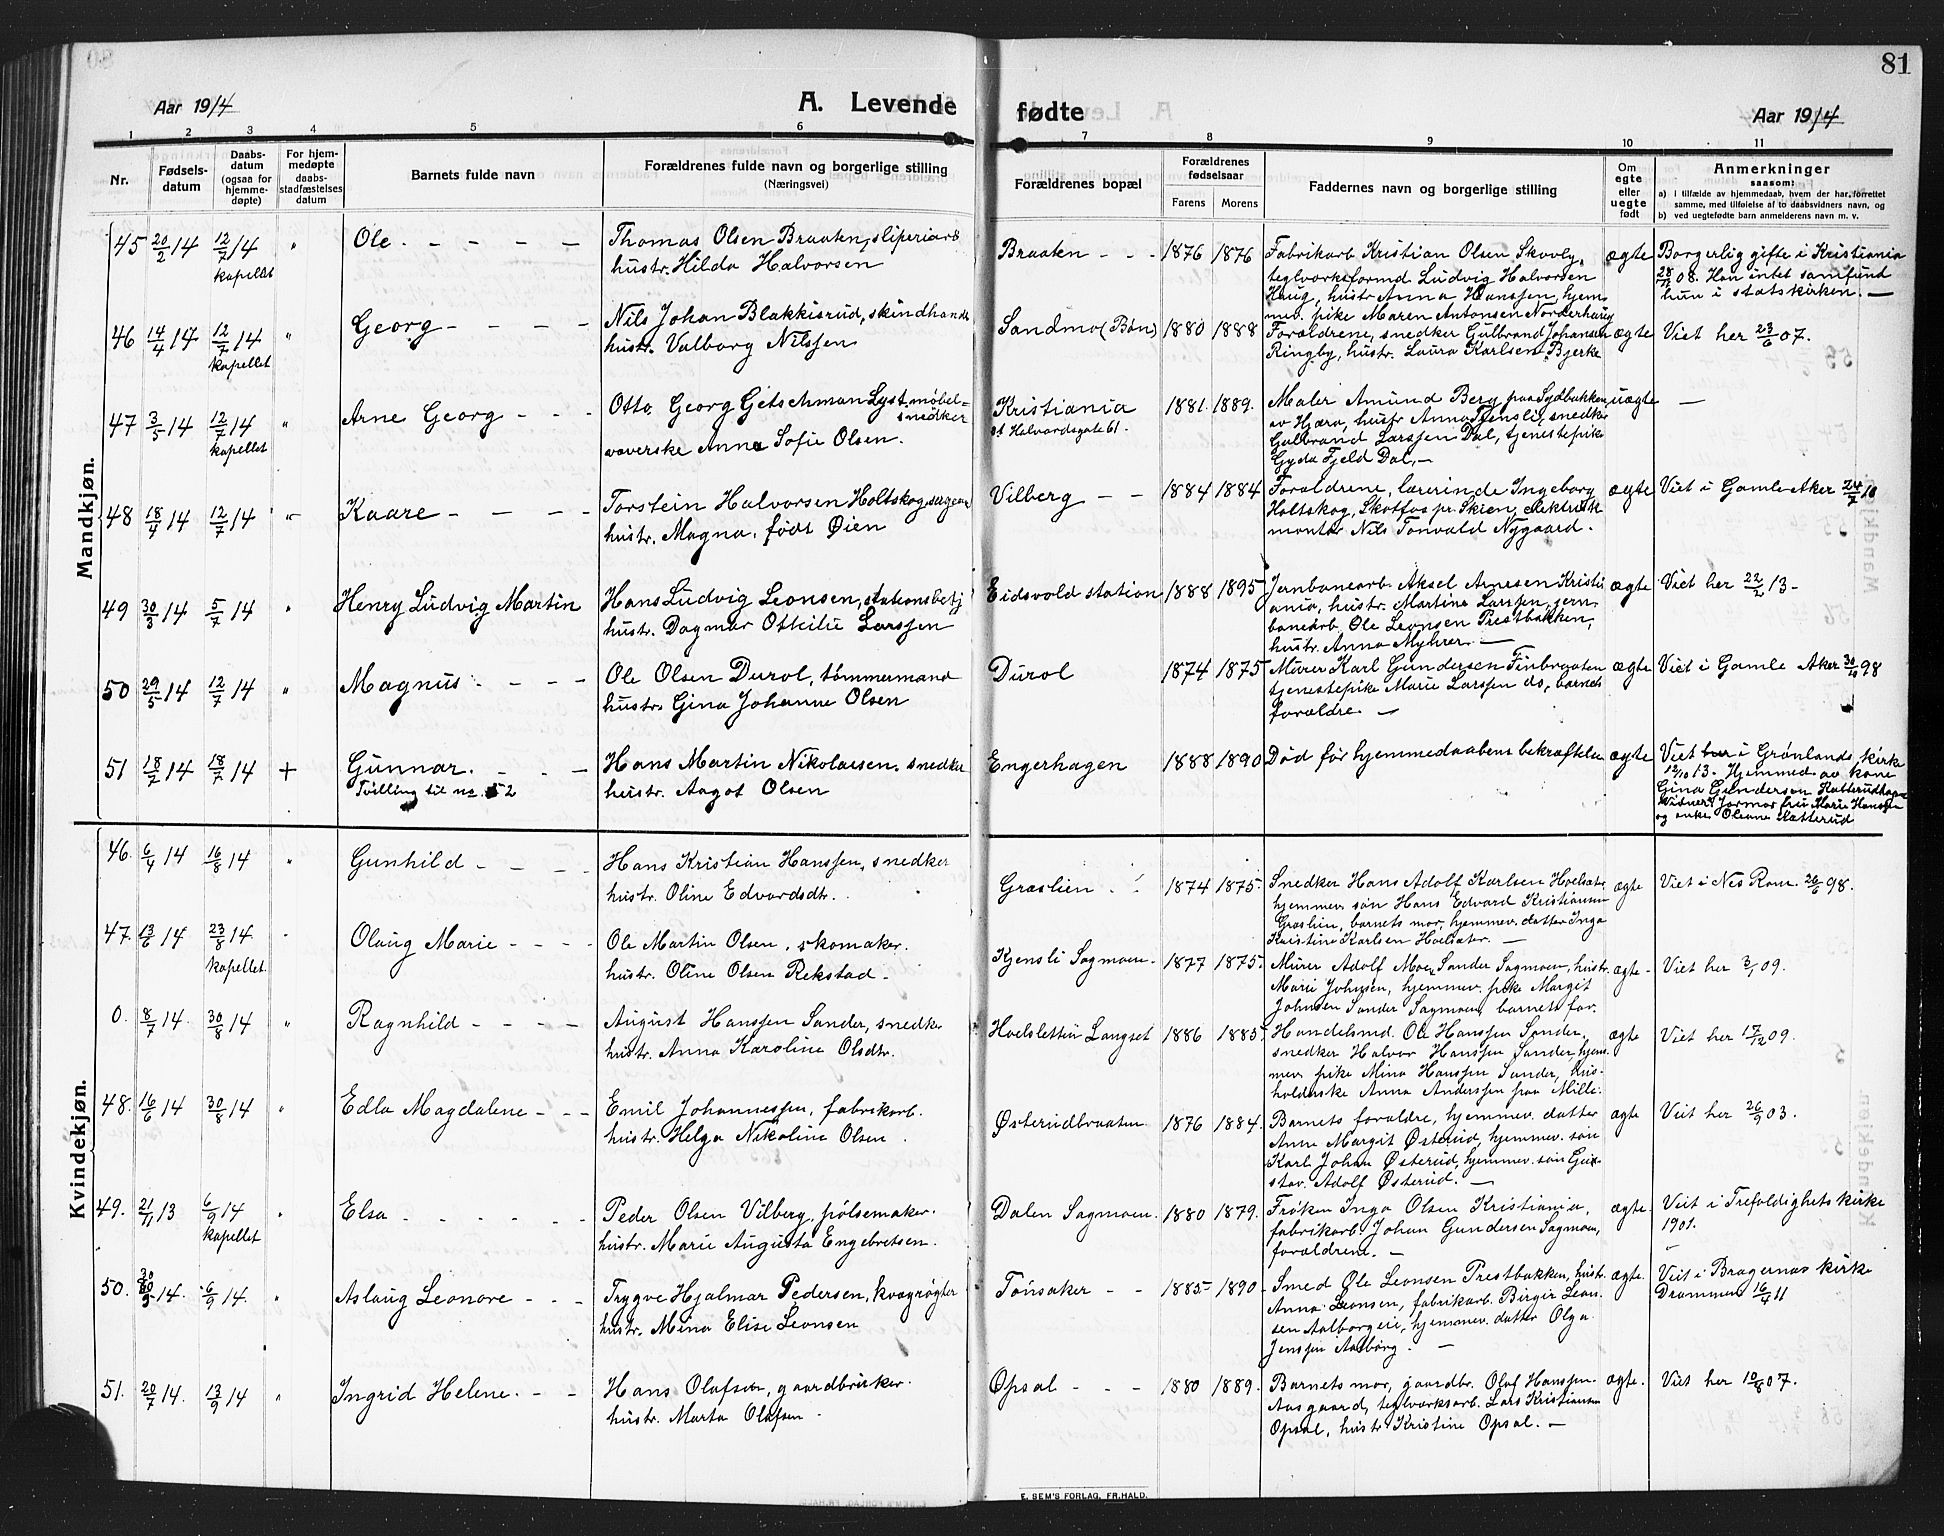 81
Aar 1914
A. Levende fødte
Aar 1914
1 2 3 4 5 6 7 8 9 10 11
Nr.
Fødsels-
datum
Daabs-
datum
(ogsaa for
hjemme-
døpte)
For hjem-
medøpte
daabs-
stadfæstelses
datum
Barnets fulde navn
Forældrenes fulde navn og borgerlige stilling
(Næringsvei)
Forældrenes bopæl
Forældrenes
fødselsaar
Farens Morens
Faddernes navn og borgerlige stilling
Om
egte
eller
uegte
født
Anmerkninger
saasom:
a) i tilfælde av hjemmedaab, hvem der har forrettet
samme, med tilføielse af to daabsvidners navn, og
b) ved uegtefødte barn anmelderens navn m. v.
Mandkjøn.
45 20/2 14 12/7 14 " Ole
kapellet
Thomas Olsen Braaten, sliperiarb
hustr. Hilda Halvorsen
Braaten 1876 1876
Fabrikarb Kristian Olsen Skovly,
teglverksformd Ludvig Halvorsen
Haug, hustr Anna Hanssen, hjem-
mev. pike Maren Antonsen Norderhaug
ægte
Borgerlig gifte i Kristiania
08. Han intet samfund
hun i statskirken. —
46 14/4 14 12/7 14 " Georg
kapellet
Nils Johan Blakkisrud, skindhandl
hustr. Valborg Nilssen
Sandmo (Bøn) 1880 1888
Forældrene, snedker Gulbrand Johansen
Ringby, hustr. Laura Karlsen Bjerke
ægte
Viet her 23/6 07.
47 3/5 14 12/7 14 " Arne Georg
kapellet
Otto Georg Getschman Lyst, møbel-
snedker
væverske Anna Sofie Olsen.
Kristiania
St Halvardsgate 61.
1881. 1889.
Maler Amund Berg paa Sydbakken
av Hjæra, hustr Anna Tjensli, snedker
Gulbrand Larssen Dal, tjenestepike
Gyda Fjeld Dal, —
uægte —
48 18/4 14 12/7 14 " Kaare
Torstein Halvorsen Holtskog,
hustr. Magna, født Øien
Vilberg 1884 1884
Forældrene, lærerinde Ingeborg
Holtskog, Skotfos pr. Skien, elektrisk
montør Nils Tonvald Nygaard.
ægte
Viet i Gamle Aker 24/7 10
49 30/3 14 5/7 14 " Henry Ludvig Martin
Hans Ludvig Leonsen, stationsbetj
hustr. Dagmar Ottilie Larssen
Eidsvold station 1888 1895
Jernbanearb. Aksel Arnesen Kristi
ania, hustr. Martine Larssen, jern-
banearb. Ole Leonsen Prestbakken,
hustr. Anna Myhrer. —
ægte
Viet her 22/2 13 -
50 29/5 14 12/7 14 " Magnus
Ole Olsen Durol, tømmermand
hustr. Gina Johanne Olsen
Durol 1874 1875
Murer Karl Gundersen Finbraaten
tjenestepike Marie Larssen ds, barnets
forældre. —
ægte
Viet i Gamle Aker 98
51 18/7 14 18/7 14 + Gunnar.
Tvilling til no. 52
Hans Martin Nikolaisen, snedker
hustr. Aagot Olsen
Engerhagen 1888 1890
Død før hjemmedaabens bekræftelse
ægte
Viet her i Grønlands kirke
12/10 13. Hjemmed. av kone
Gina Gundersen Katterudhagen
Vidner: Jormor fru Marie Hanssen
og enke Oleane Sletterud
Kvindekjøn.
46. 6/4 14 16/8 14 " Gunhild
Hans Kristian Hanssen, snedker
hustr. Oline Edvardsdtr.
Græslien 1874 1875
Snedker Hans Adolf Karlsen Hoelsæter,
hjemmev. søn Hans Edvard Kristiansen
Græslien, barnets mor, hjemmev. datter Inga
Kristine Karlsen Hoelsæter. —
ægte
Viet i Nes Rom. 26/6 98.
47. 13/6 14 23/8 14 " Olaug Marie
kapellet
Ole Martin Olsen, skomaker.
hustr. Oline Olsen Rekstad
Kjensli Sagmoen 1877 1875
Murer Adolf Moe, Sander Sagmoen, hustr.
Marie Johnsen, hjemmev. pike Margit
Johnsen Sander Sagmoen, barnets far.
ægte
Viet her 3/1 09.
0. 8/7 14. 30/8 14 " Ragnhild
August Hanssen Sander, snedker
hustr. Anna Karoline Olsdtr.
Hoelsletten Langset 1886 1885
Handelsmd. Ole Hanssen Sander,
snedker Halvor Hanssen Sander, hjem-
mev. pike Mina Hanssen Sander, hus-
holderske Anna Anderssen paa Mille.
ægte
Viet her 17/12 09.
48. 16/6 14 30/8 14 " Edla Magdalene
Emil Johannessen, fabrikarb.
hustr. Helga Nikoline Olsen
Østerudbraaten 1876 1884.
Barnets forældre, hjemmev. datter
Anne Margit Østerud, hjemmev. søn
Karl Johan Østerud, hjemmev. søn Gus-
tav Adolf Østerud. —
ægte
Viet her 26/9 03.
49. 21/11 13 6/9 14 " Elsa
kapellet
Peder Olsen Vilberg, pølsemaker.
hustr. Marie Augusta Engebretsen.
Dalen Sagmoen. 1880 1879.
Frøken Inga Olsen Kristiania,
fabrikarb. Johan Gundersen Sagmoen,
forældrene. —
ægte
Viet i Trefoldighets kirke
1901.
50. 14. 6/9 14. " Aslaug Leonore
Trygve Hjalmar Pedersen, kvægrøgter
hustr. Mina Elise Leonsen
Tønsaker 1885 1890
Smed Ole Leonsen Prestbakken, hustr.
Anna Leonsen, fabrikarb. Birger Leon-
sen Aalborgeie, hjemmev. datter Olga
Jenssen Aalborg. —
ægte.
Viet i Bragernes kirke
Drammen 16/4 11
51. 20/7 14. 13/9 14 " Ingrid Helene.
Hans Olafsen, gaardbruker.
hustr. Marta Olafsen
Opsal 1880 1889.
Barnets mor, gaardbr. Olaf Hanssen
Aasgaard, teglverksarb. Lars Kristiansen
Opsal, hustr Kristine Opsal. —
ægte.
Viet her 10/8 07.
E. SEM'S FORLAG, FR.HALD.